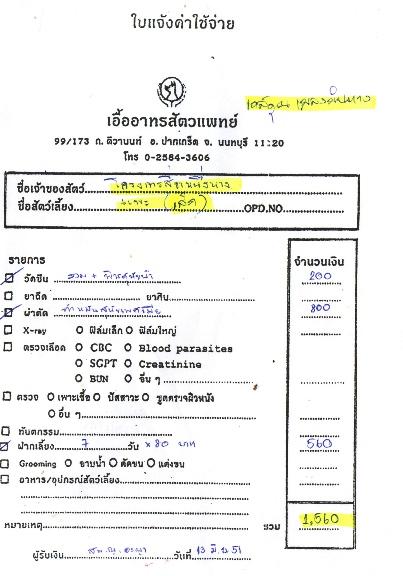 ใบแจ้งค่าใช้จ่าย
เอื้ออาทรสัตวแพทย์
99/173 ถ. ติวานนท์ อ. ปากเกร็ด จ. นนทบุรี 11120
โทร 0-2584-3606
ชื่อเจ้าของสัตว์
ชื่อสัตว์เลี้ยง OPD.NO.
รายการ จำนวนเงิน
วัคซีน รวม + พิษสุนัขบ้า 200
ยาฉีด ยากิน
ผ่าตัด ทำหมันสุนัขเพศเมีย 800
X-ray ฟิล์มเล็ก ฟิล์มใหญ่
ตรวจเลือด CBC Blood parasites
SGPT Creatinine
BUN อื่น ๆ
ตรวจ เพาะเชื้อ ปัสสาวะ ขูดตรวจผิวหนัง
อื่น ๆ
ทันตกรรม
ฝากเลี้ยง 7 วัน x 80 บาท 560
Grooming อาบน้ำ ตัดขน แต่งขน
อาหาร/อุปกรณ์สัตว์เลี้ยง
หมายเหตุ รวม 1,560
ผู้รับเงิน วันที่ 13 มิ.ย 51